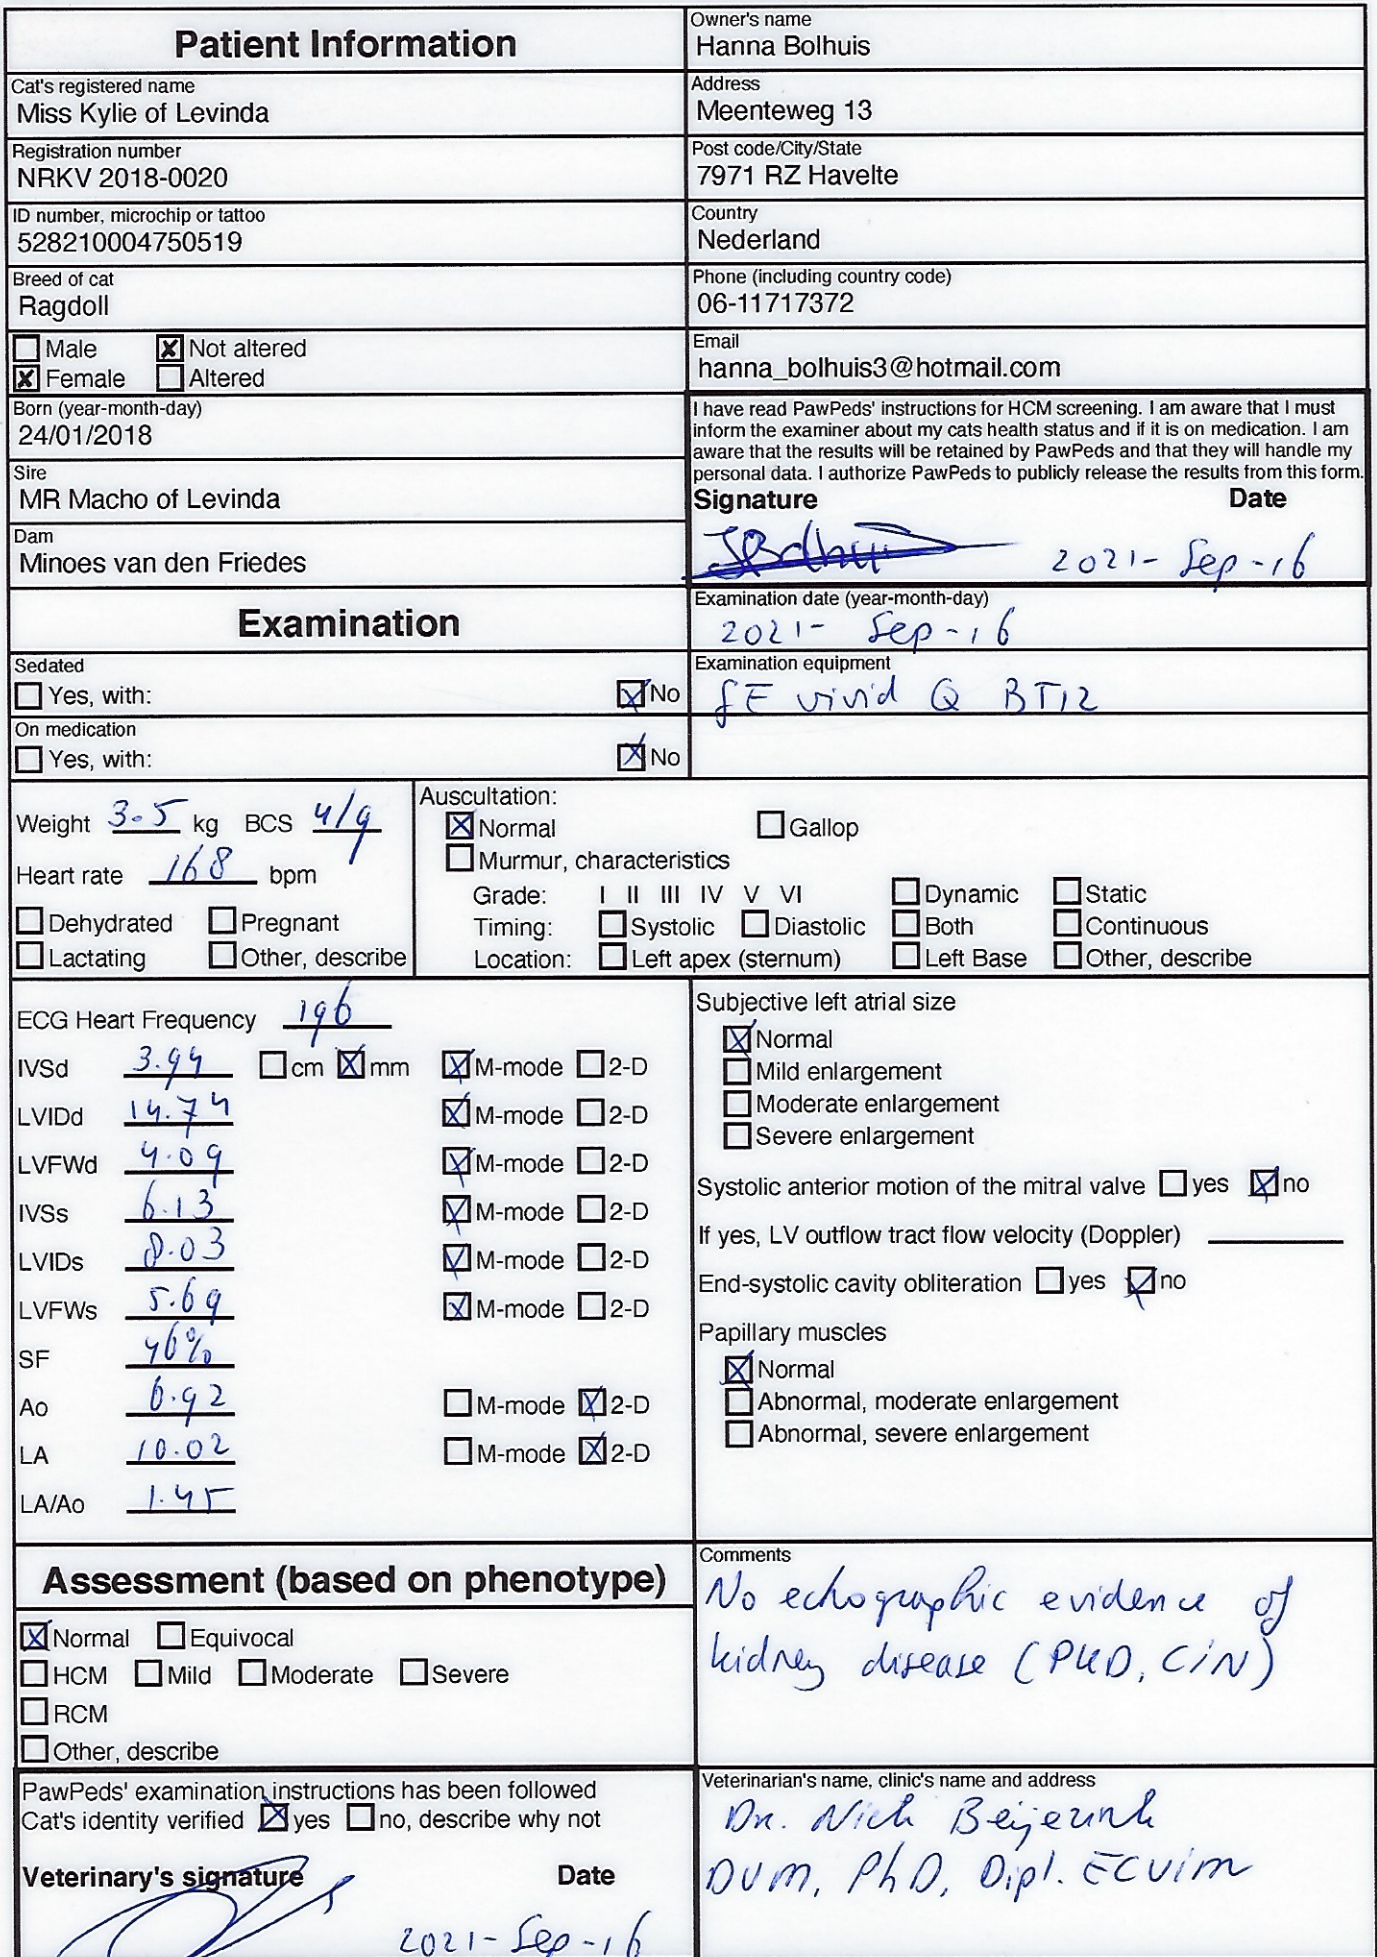 Patient Information
Owner's name
Hanna Bolhuis
Cat's registered name
Miss Kylie of Levinda
Address
Meenteweg 13
Registration number
NRKV 2018-0020
Post code/City/State
7971 RZ Havelte
ID number, microchip or tattoo
528210004750519
Country
Nederland
Breed of cat
Ragdoll
Phone (including country code)
06-11717372
Male Not altered
Female Altered
Email
hanna_bolhuis3@hotmail.com
Born (year-month-day)
24/01/2018
Sire
MR Macho of Levinda
Dam
Minoes van den Friedes
I have read PawPeds' instructions for HCM screening. I am aware that I must
inform the examiner about my cats health status and if it is on medication. I am
aware that the results will be retained by PawPeds and that they will handle my
personal data. I authorize PawPeds to publicly release the results from this form.
Signature Date
2021-Sep-16
Examination
Examination date (year-month-day)
2021-Sep-16
Sedated
Yes, with: No
Examination equipment
GE vivid Q BT12
On medication
Yes, with: No
Weight 3.5 kg BCS 4/9
Heart rate 168 bpm
Dehydrated Pregnant
Lactating Other, describe
Auscultation:
Normal Gallop
Murmur, characteristics
Grade: I II III IV V VI Dynamic Static
Timing: Systolic Diastolic Both Continuous
Location: Left apex (sternum) Left Base Other, describe
ECG Heart Frequency 196
IVSd 3.94 cm mm M-mode 2-D
LVIDd 14.74 M-mode 2-D
LVFWd 4.09 M-mode 2-D
IVSs 6.13 M-mode 2-D
LVIDs 8.03 M-mode 2-D
LVFWs 5.69 M-mode 2-D
SF 46%
Ao 6.92 M-mode 2-D
LA 10.02 M-mode 2-D
LA/Ao 1.45
Subjective left atrial size
Normal
Mild enlargement
Moderate enlargement
Severe enlargement
Systolic anterior motion of the mitral valve yes no
If yes, LV outflow tract flow velocity (Doppler)
End-systolic cavity obliteration yes no
Papillary muscles
Normal
Abnormal, moderate enlargement
Abnormal, severe enlargement
Assessment (based on phenotype)
Normal Equivocal
HCM Mild Moderate Severe
RCM
Other, describe
Comments
No echographic evidence of
kidney disease (PKD, CIN)
PawPeds' examination instructions has been followed
Cat's identity verified yes no, describe why not
Veterinary's signature Date
2021-Sep-16
Veterinarian's name, clinic's name and address
Dr. Nick Beijerink
DVM, PhD, Dipl. ECVIM